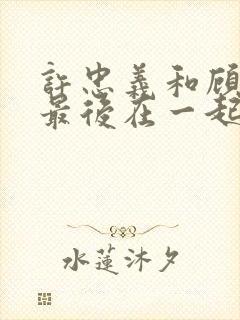 許忠義和顧
最後在一起
水蓮沐夕